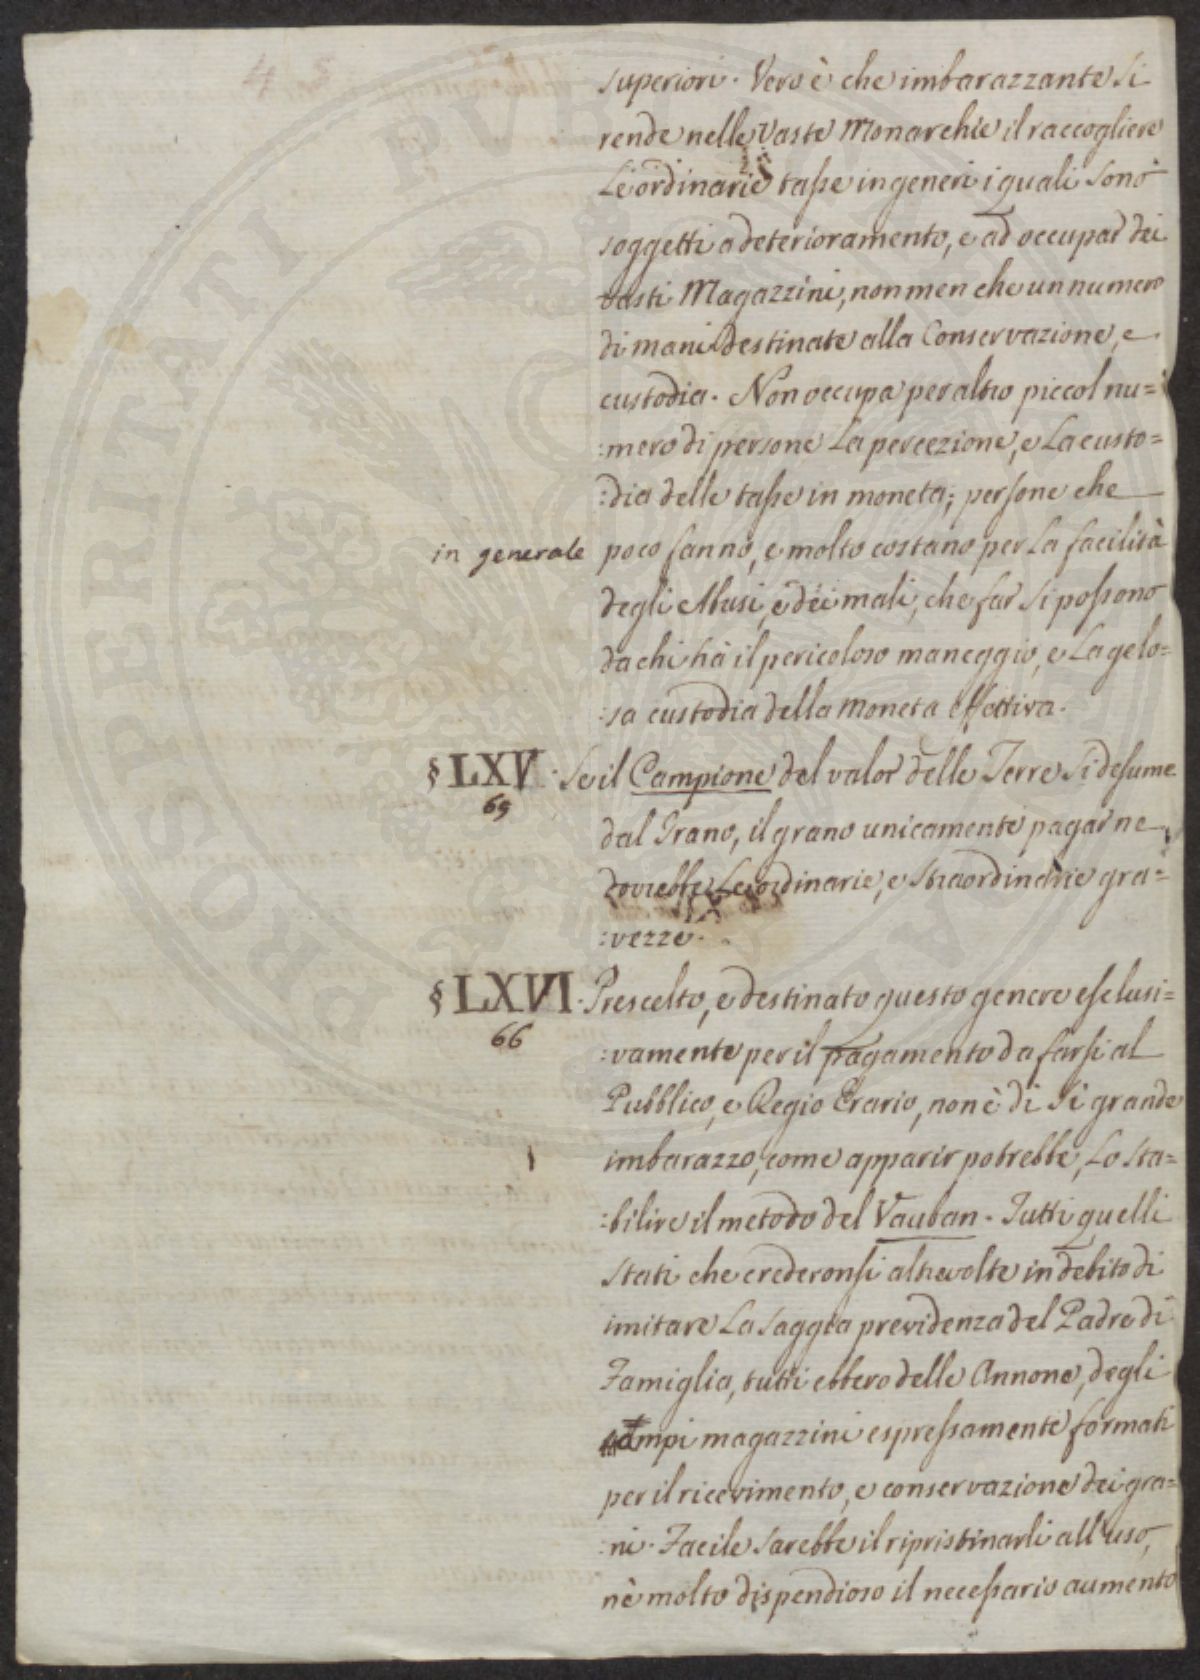 superiori. Vero è che imbarazzante si
rende nelle vaste Monarchie il raccogliere
le ordinarie tasse in generi i quali sono
soggetti a deterioramento, e ad occupar dei
vasti Magazzini, non men che un numero
di mani destinate alla Conservazione, e
custodia. Non occupa per altro piccol nu=
:mero di persone la percezione, e la custo=
:dia delle tasse in moneta; persone che
in generale poco fanno, e molto costano per la facilità
degli Abusi, e dei mali, che far si possono
da chi hà il pericoloso maneggio, e la gelo=
:sa custodia della moneta effettiva.
§ LXV. Se il Campione del valor delle Terre si desume
65
dal Grano, il grano unicamente pagar ne
dovrebbe le ordinarie, e straordinarie gra=
:vezze.
§ LXVI. Prescelto, e destinato questo genere esclusi=
66
:vamente per il pagamento da farsi al
Pubblico, e Regio Erario, non è di sì grande
imbarazzo, come apparir potrebbe, lo sta=
:bilire il metodo del Vauban. Tutti quelli
stati che crederonsi altre volte in debito di
imitare la saggia previdenza del Padre di
Famiglia, tutti ebbero delle Annone, degli
ampi magazzini espressamente formati
per il ricevimento, e conservazione dei gra=
:ni. Facile sarebbe il ripristinarli all'uso,
nè molto dispendioso il necessario aumento
PROSPERITATI PVBLICAE